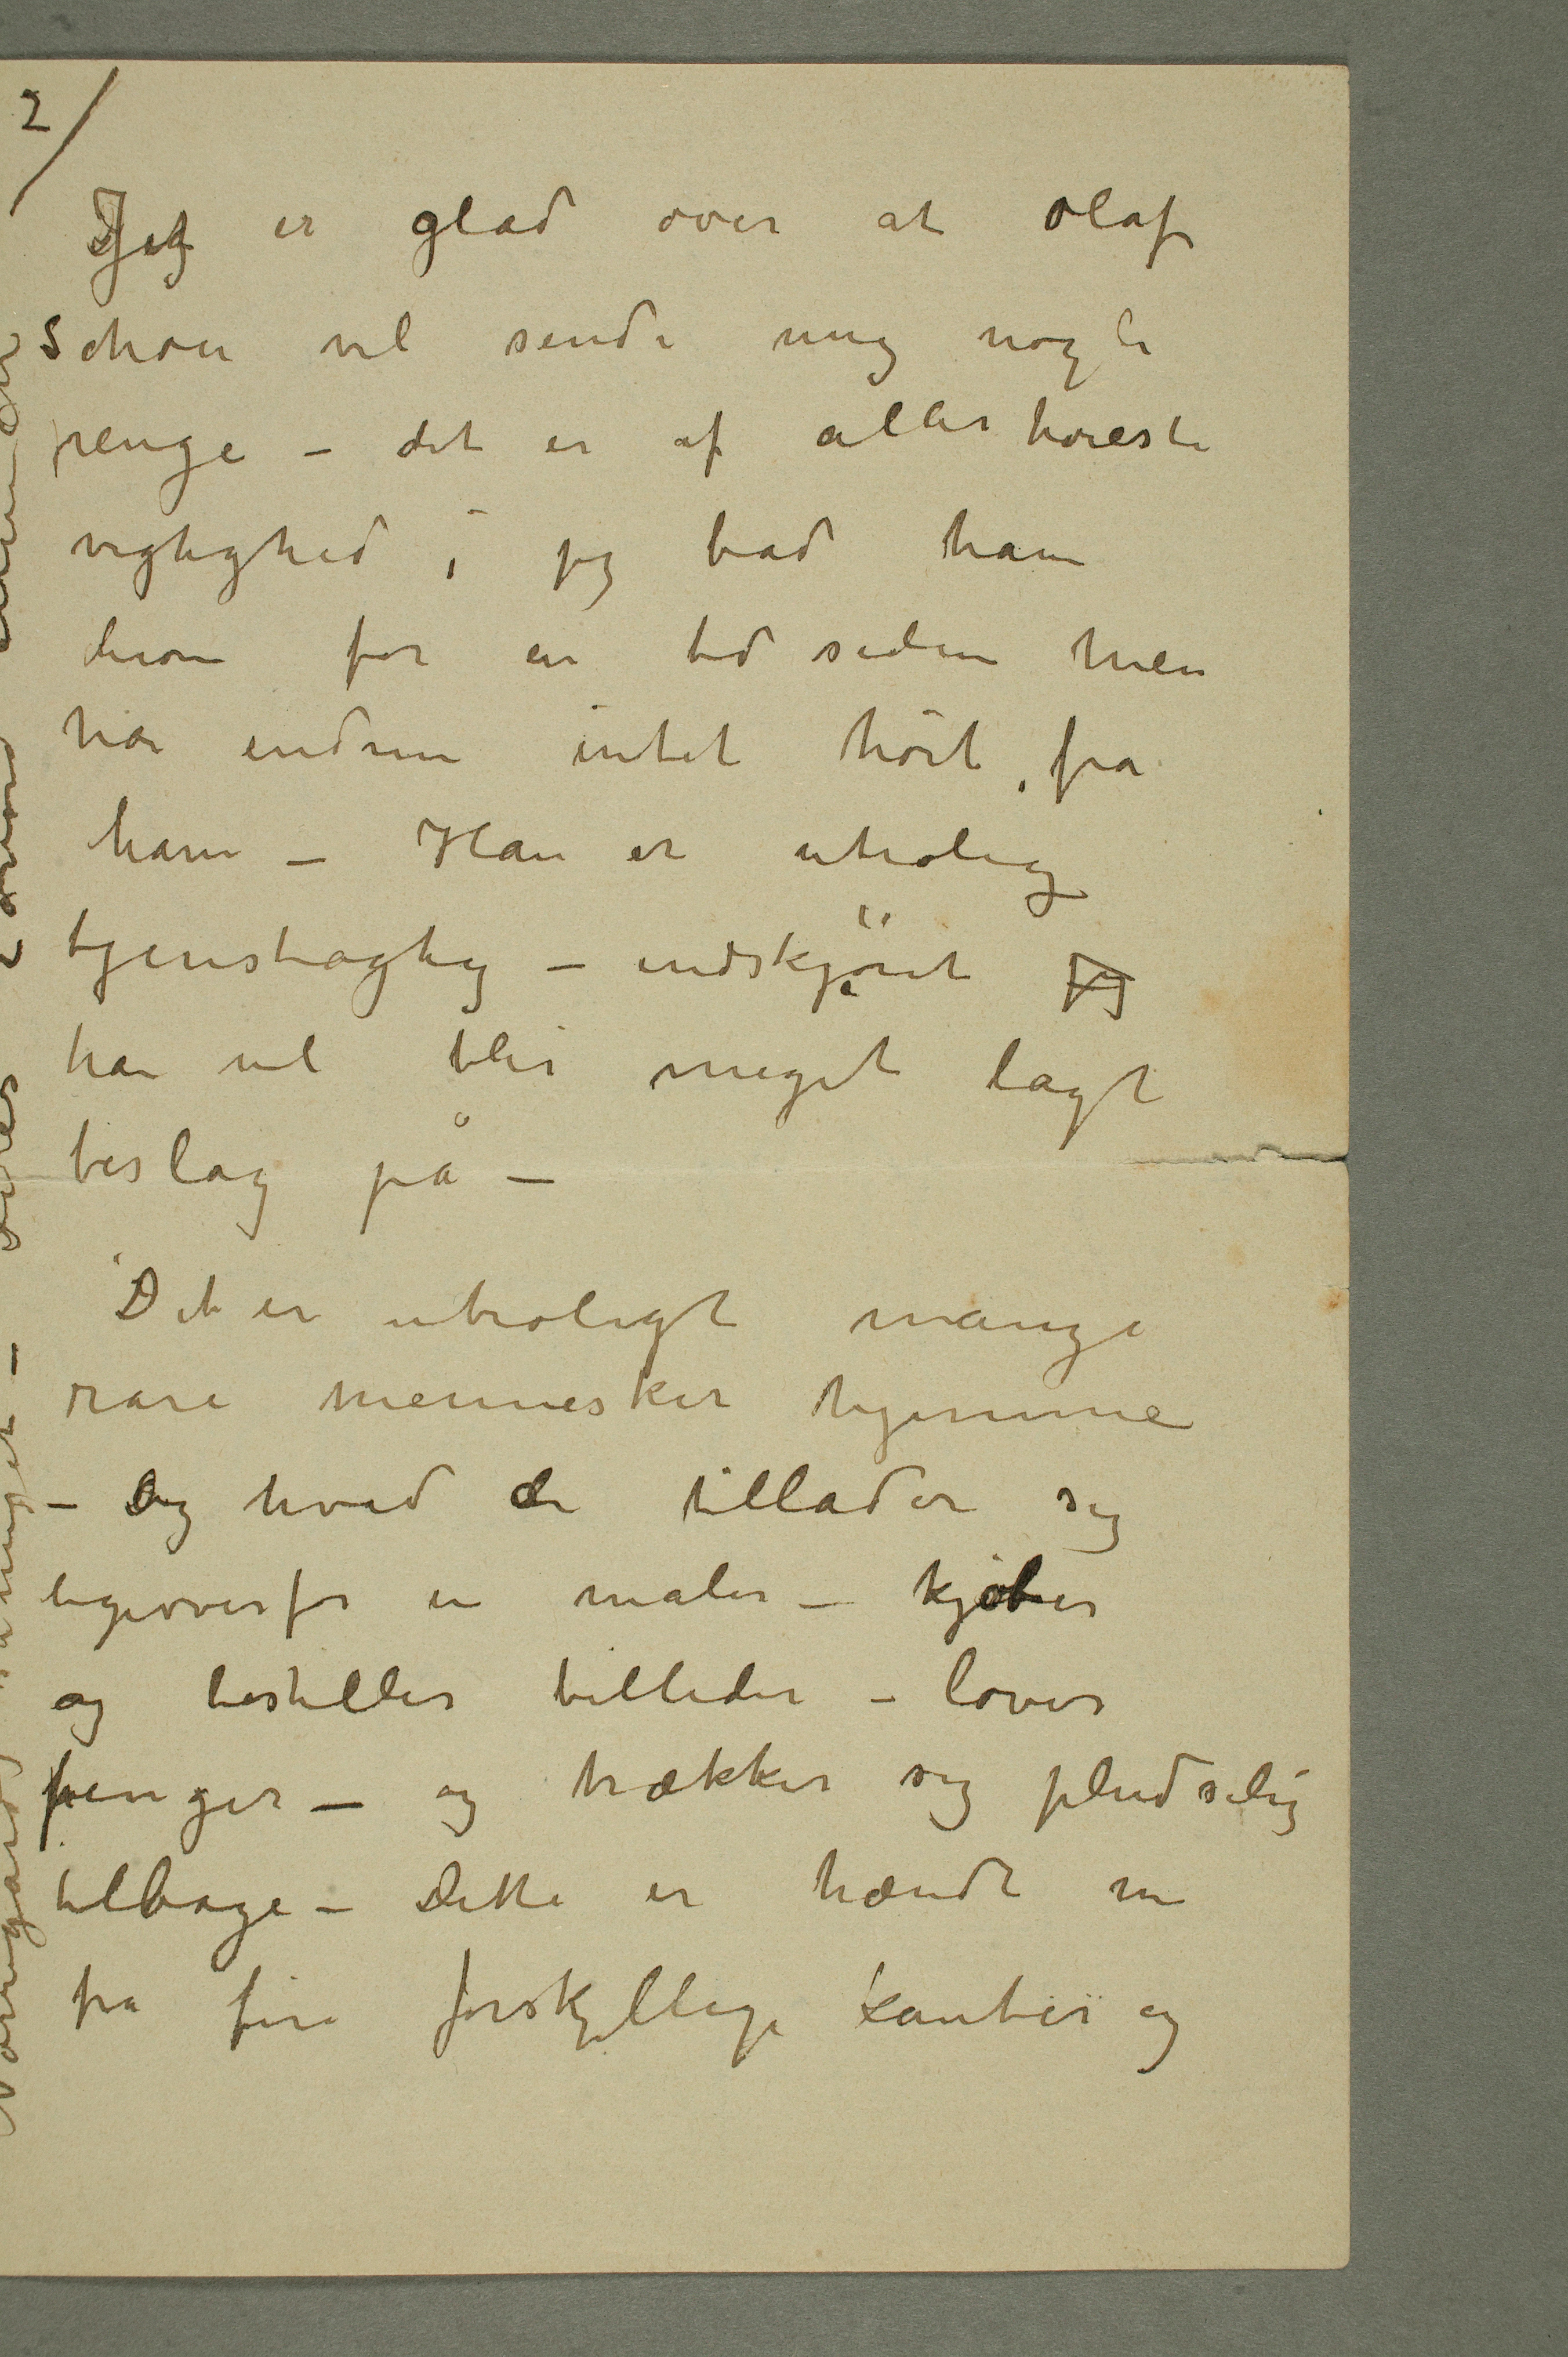 2/
Jeg er glad over at Olaf
Schou vil sende mig nogle
penge – det er af aller høieste
vigtighed; jeg bad ham
derom for en tid siden men
har endnu intet hört, fra
ham – Han er utrolig
tjenstagtig – endskjönt jeg
han vel blir meget lagt
beslag på –
Det er utroligt mange
rare mennesker hjemme
– Og hvad de tillader sig
ligeoverfor en maler – kjøber
og bestiller billeder – lover
penger – og trækker sig pludselig
tilbage – Dette er hændt nu
fra fire forskjellige kanter og